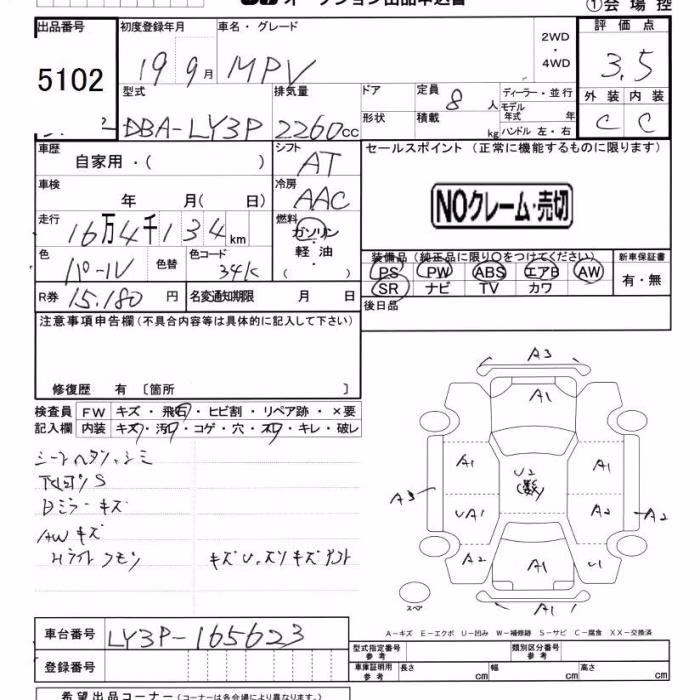 オークション出品申込書
①会場控
出品番号 初度登録年月 車名・グレード 2WD・4WD 評価点
5102 19 9月 MPV 3.5
型式 排気量 ドア 定員 8人 ディーラー・並行 外装 内装
DBA-LY3P 2260cc 形状 積載 kg モデル年式 年 ハンドル 左・右 C C
車歴 自家用・( ) シフト AT セールスポイント (正常に機能するものに限ります)
車検 年 月( 日) 冷房 AAC NOクレーム・売切
走行 16万4千134km 燃料 ガソリン 軽油 ( ・ )
色 パール 色替 色コード 34K 装備品 (純正品に限り○をつけてください) 新車保証書
PS PW ABS エアB AW 有・無
SR ナビ TV カワ
R券 15,180円 名変通知期限 月 日 後日品
注意事項申告欄 (不具合内容等は具体的に記入して下さい)
修復歴 有 〔箇所 〕
検査員 FW キズ・飛石・ヒビ割・リペア跡・×要
記入欄 内装 キズ・汚レ・コゲ・穴・スレ・キレ・破レ
シートヘタリ、シミ
Bミラーキズ
AWキズ
Hライトクモリ
A3
A1
A1 U2 (数) A1
A3 UA1 A2 A2
A2 A1 U1
スペア A1
A-キズ E-エクボ U-凹み W-補修跡 S-サビ C-腐食 XX-交換済
車台番号 LY3P-165623
型式指定番号 参考 類別区分番号 参考
登録番号 車庫証明用 参考 長さ cm 幅 cm 高さ cm
希望出品コーナー (コーナーは各会場により異なります。)